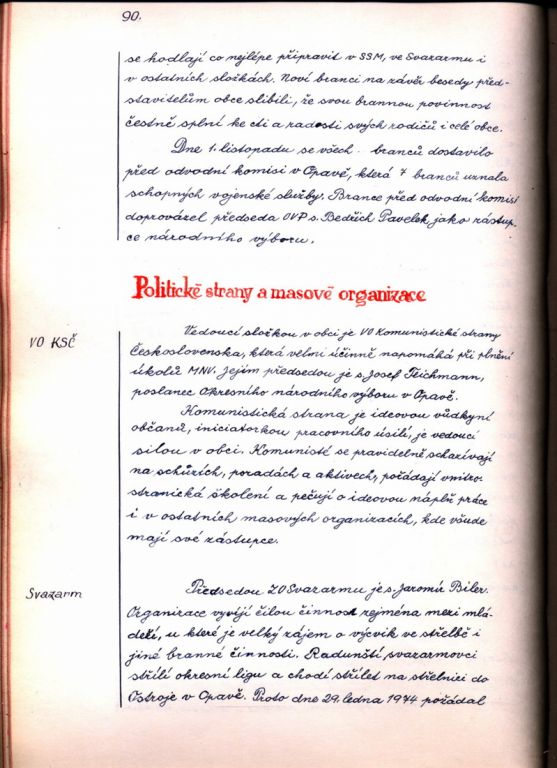 90.
se hodlají co nejlépe připravit v SSM, ve Svazarmu i
v ostatních složkách. Noví branci na závěr besedy před-
stavitelům obce slíbili, že svou brannou povinnost
čestně splní ke cti a radosti svých rodičů i celé obce.
Dne 1. listopadu se všech branců dostavilo
před odvodní komisi v Opavě, která 7 branců uznala
schopných vojenské služby. Brance před odvodní komisi
doprovázel předseda OVP s. Bedřich Pavelek jako zástup-
ce národního výboru.
Politické strany a masové organizace
VO KSČ
Vedoucí složkou v obci je VO Komunistické strany
Československa, která velmi účinně napomáhá při plnění
úkolů MNV. Jejím předsedou je s. Josef Teichmann,
poslanec Okresního národního výboru v Opavě.
Komunistická strana je ideovou vůdkyní
občanů, iniciátorkou pracovního úsilí, je vedoucí
silou v obci. Komunisté se pravidelně scházívají
na schůzích, poradách a aktivech, pořádají vnitro-
stranická školení a pečují o ideovou náplň práce
i v ostatních masových organizacích, kde všude
mají své zástupce.
Svazarm
Předsedou ZO Svazarmu je s. Jaromír Biler.
Organizace vyvíjí čilou činnost zejména mezi mlá-
deží, u které je velký zájem o výcvik ve střelbě i
jiné branné činnosti. Radunští svazarmovci
střílí okresní ligu a chodí střílet na střelnici do
Ostroje v Opavě. Proto dne 29. ledna 1974 požádal